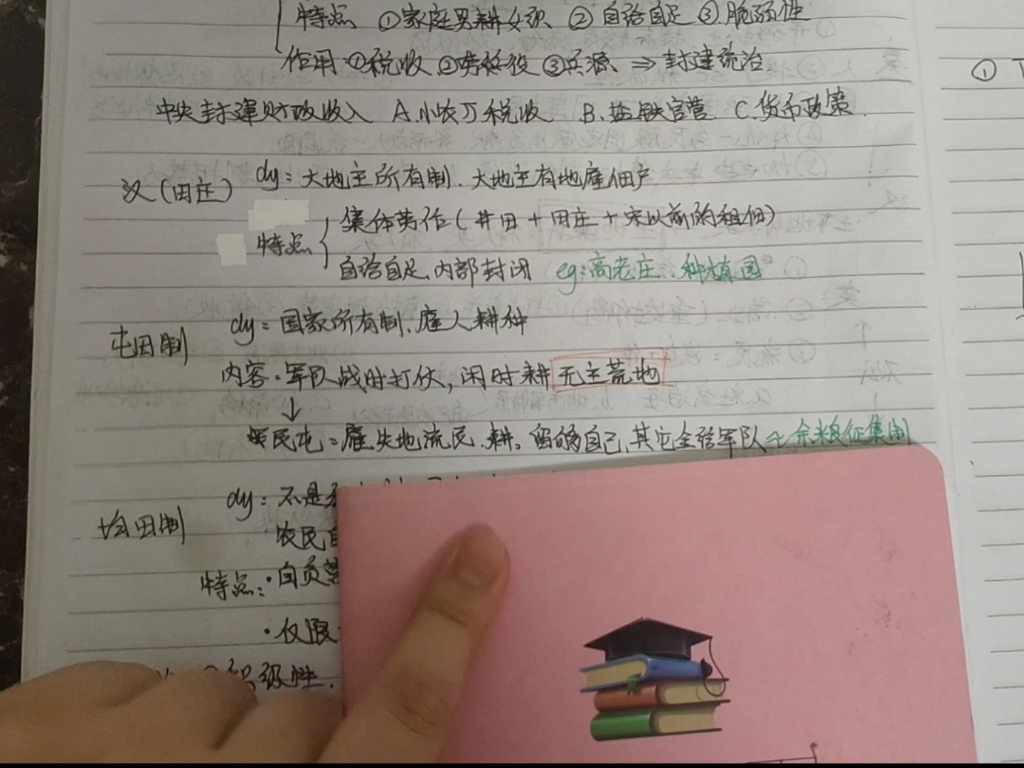 特点 ①家庭男耕女织 ② 自给自足 ③ 脆弱性
作用 ①税收 ②劳役 ③兵源 ⇒ 封建统治
中央封建财政收入 A.小农丁税收 B.盐铁官营 C.货币政策
①
汉(田庄) dy: 大地主所有制. 大地主有地雇佃户
特点 集体劳作(井田+田庄+宋以前的租佃)
自给自足.内部封闭 eg:高老庄.种植园
屯田制 dy: 国家所有制.雇人耕种
内容: 军队战时打仗, 闲时耕 无主荒地
↓
民屯: 雇失地流民.耕. 留够自己,其它全给军队 余粮征集制
均田制 dy: 不是
农民
特点: ·自负
·仅限
级性.